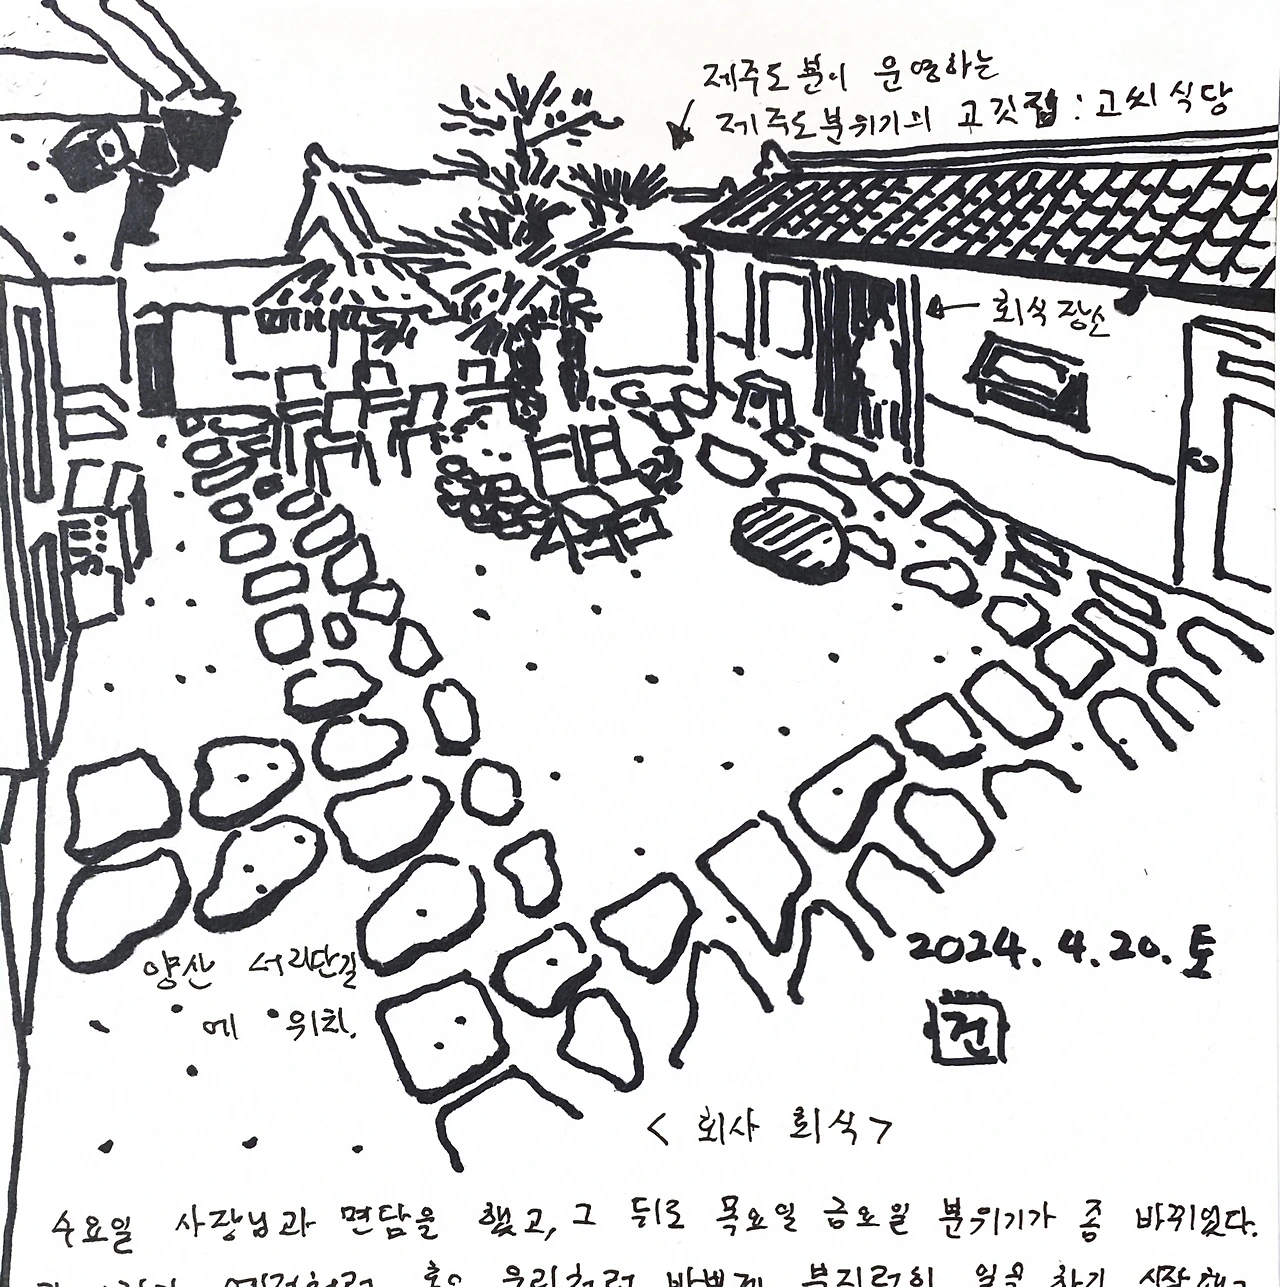 제주도분이 운영하는
제주도분위기의 고깃집 : 고씨식당
회식장소
양산 서리단길
에 위치.
2024. 4. 20. 토
건
< 회사 회식 >
수요일 사장님과 면담을 했고, 그 뒤로 목요일 금요일 분위기가 좀 바뀌었다.
우리처럼 바쁘게 부지런히 일을 하기 시작했고